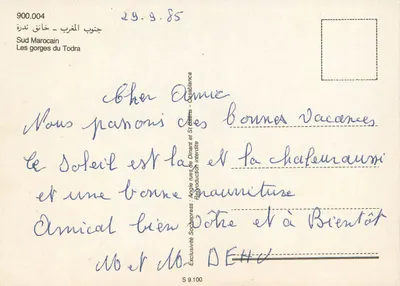 900.004
29.9.85
جنوب المغرب - خانق تدرة
Sud Marocain
Les gorges du Todra
Cher Amie
Nous passons des bonnes vacances
Le Soleil est la et la chaleur aussi
et une bonne nourriture
Amical bien vôtre et à Bientôt
M et M. DEHU
Exclusivité Sochepress : Angle rues de Dinant et St Saëns - Casablanca
Reproduction interdite
S 9.100